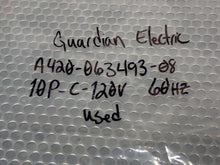 Guardian Electric
A420-063493-08
10P-C-120V 60HZ
used